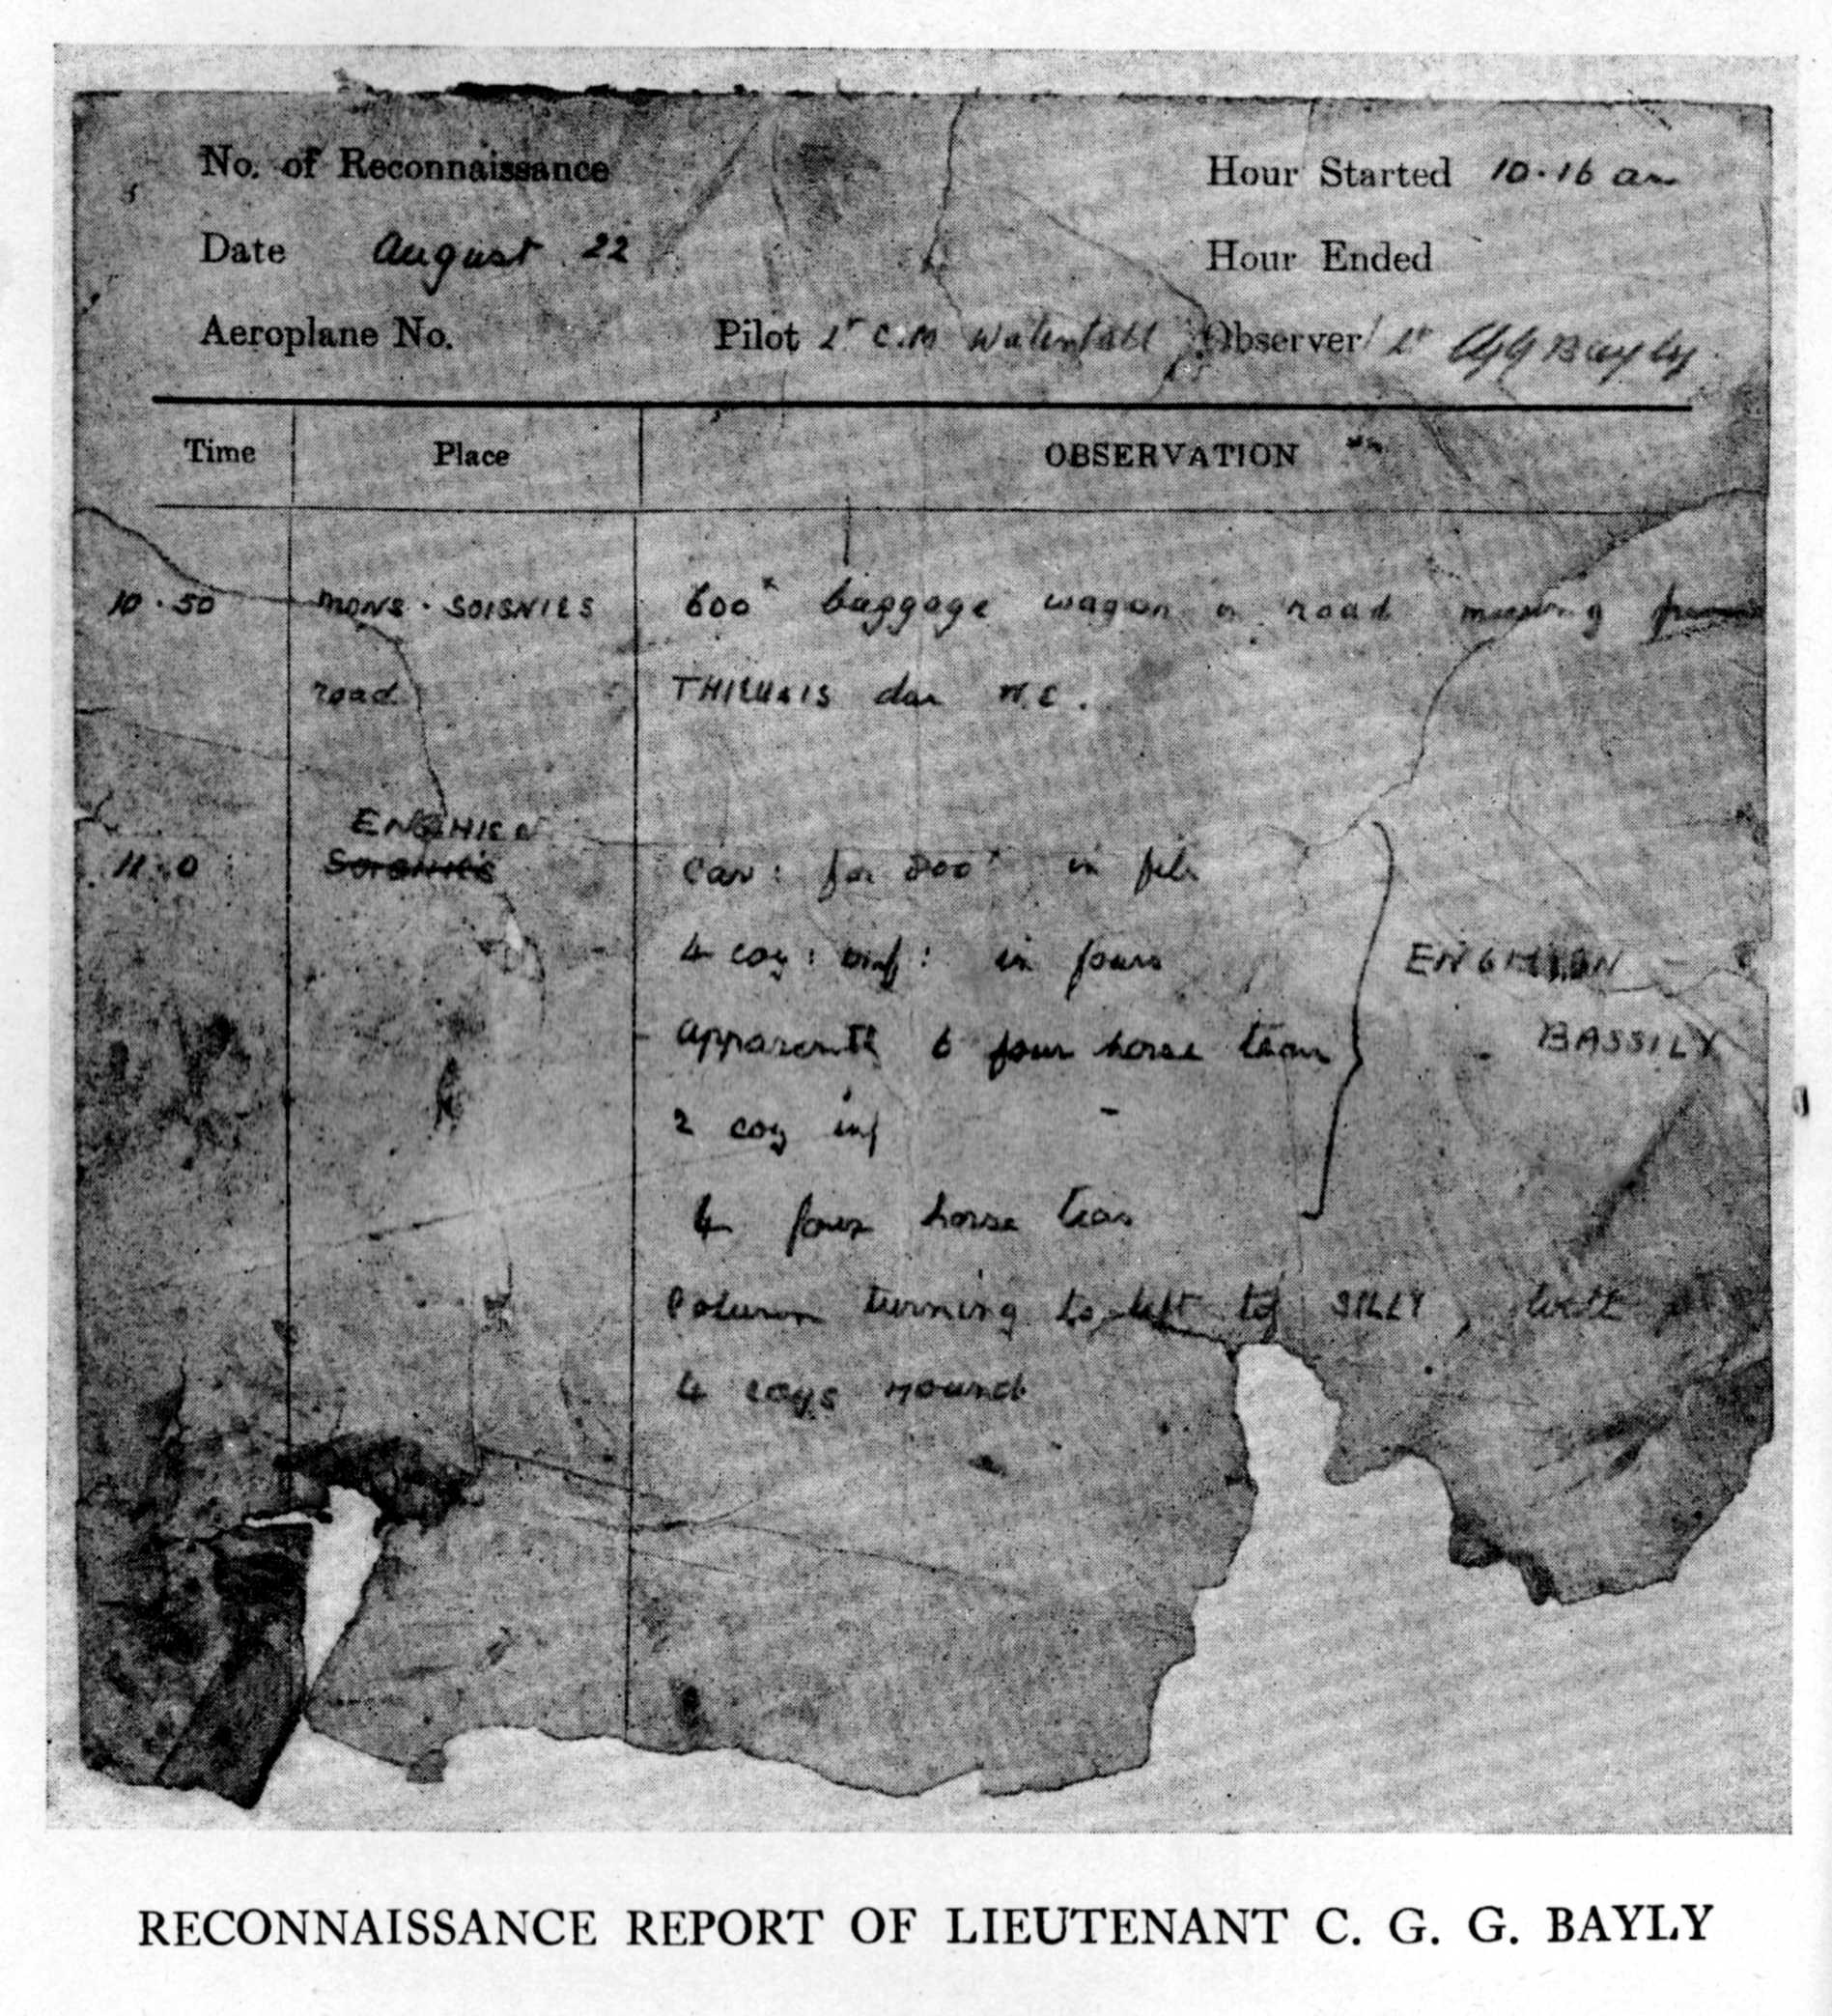 No. of Reconnaissance Hour Started 10.16 am
Date August 22 Hour Ended
Aeroplane No. Pilot Lt C.M Waterfall Observer Lt CGG Bayly
Time Place OBSERVATION
10.50 MONS . SOIGNIES 600x baggage wagon on road
road THIEUSIS due N.E.
ENGHIEN
11.0 Soignies Cav: for 200x in file
4 coy: inf: in fours ENGHIEN -
apparently 6 four horse team BASSILY
2 coy inf
4 four horse teams
Column turning to left to SILLY, with
4 coys round
RECONNAISSANCE REPORT OF LIEUTENANT C. G. G. BAYLY